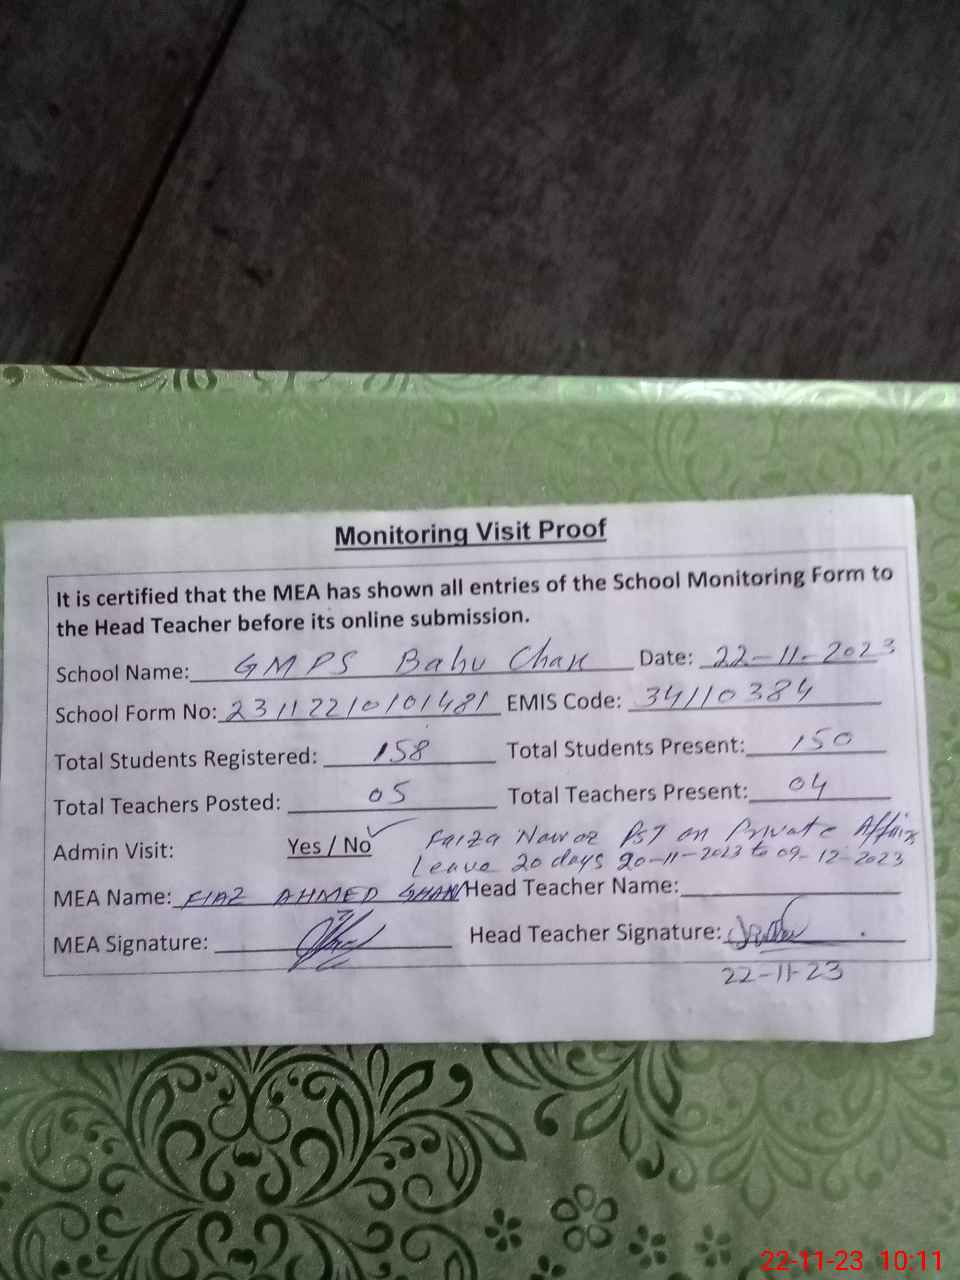 Monitoring Visit Proof
It is certified that the MEA has shown all entries of the School Monitoring Form to
the Head Teacher before its online submission.
School Name: GMPS Bahu Chak Date: 22-11-2023
School Form No: 23112210101481 EMIS Code: 34110384
Total Students Registered: 158 Total Students Present: 150
Total Teachers Posted: 05 Total Teachers Present: 04
Admin Visit: Yes / No Faiza Nawaz PST on Private Affairs
Leave 20 days 20-11-2023 to 09-12-2023
MEA Name: FIAZ AHMED Head Teacher Name:
MEA Signature: Head Teacher Signature:
22-11-23
22-11-23 10:11